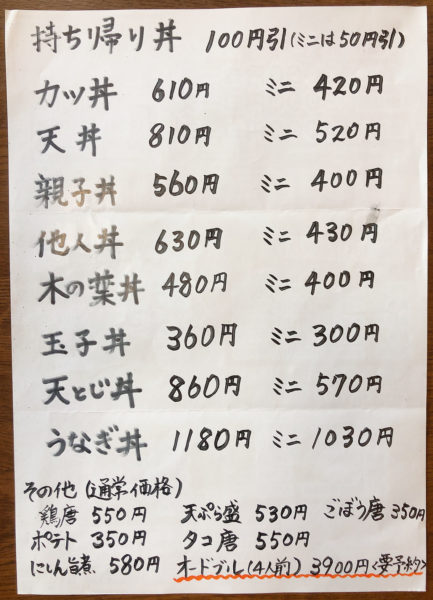 持ち帰り丼 100円引(ミニは50円引)
カツ丼 610円 ミニ 420円
天丼 810円 ミニ 520円
親子丼 560円 ミニ 400円
他人丼 630円 ミニ 430円
木の葉丼 480円 ミニ 400円
玉子丼 360円 ミニ 300円
天とじ丼 860円 ミニ 570円
うなぎ丼 1180円 ミニ 1030円
その他(通常価格)
鶏唐 550円 天ぷら盛 530円 ごぼう唐 350円
ポテト 350円 タコ唐 550円
にしん旨煮 580円 オードブル(4人前) 3900円<要予約>